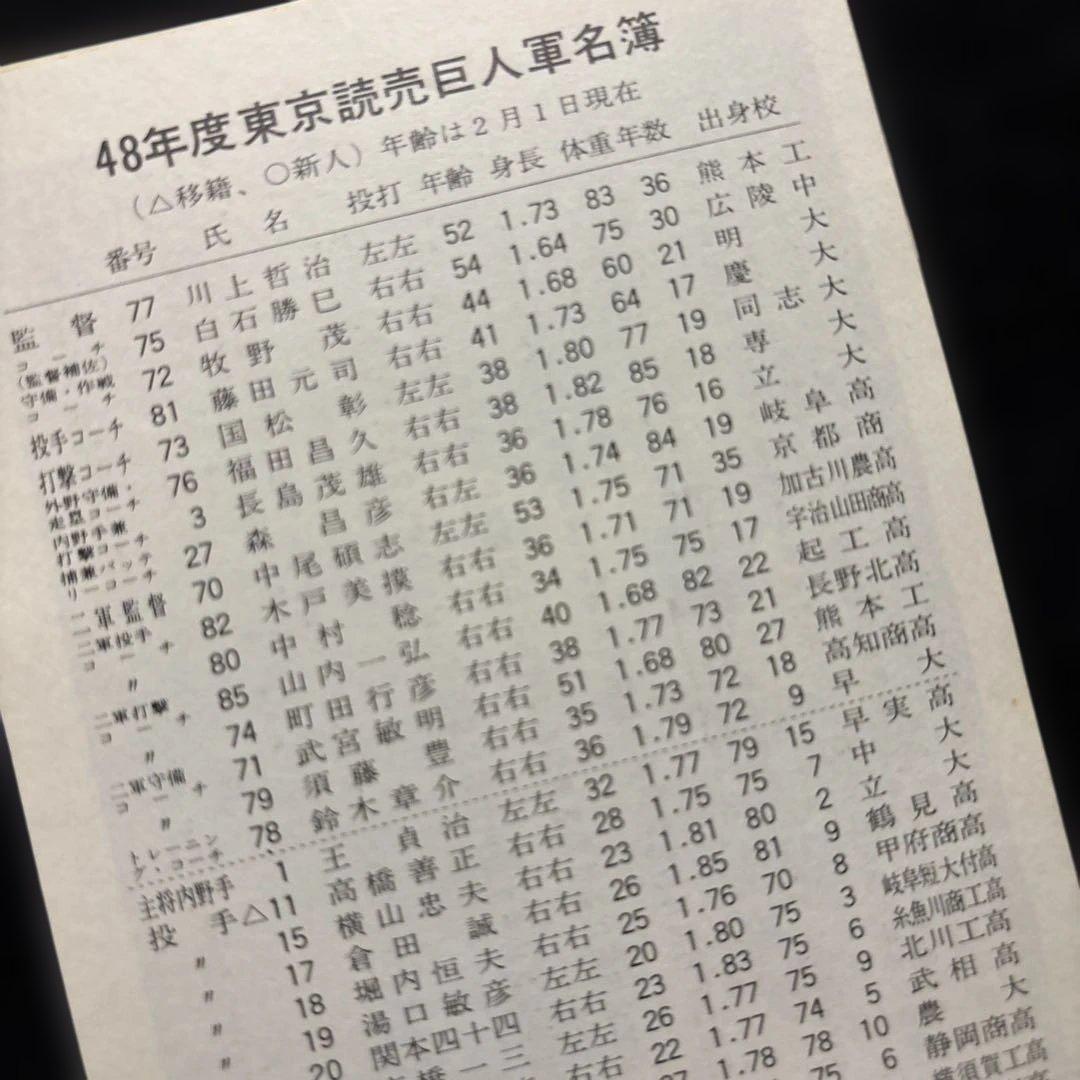 48年度東京読売巨人軍名簿
(△移籍、○新人) 年齢は2月1日現在
番号 氏名 投打 年齢 身長 体重 年数 出身校
監督 77 川上哲治 左左 52 1.73 83 36 熊本工
コーチ(監督補佐) 75 白石勝巳 右右 54 1.64 75 30 広陵中
守備・作戦コーチ 72 牧野茂 右右 44 1.68 60 21 明大
投手コーチ 81 藤田元司 右右 41 1.73 64 17 慶大
打撃コーチ 73 国松彰 左左 38 1.80 77 19 同志大
外野守備・走塁コーチ 76 福田昌久 右右 38 1.82 85 18 専大
内野手兼打撃コーチ 3 長島茂雄 右右 36 1.78 76 16 立大
捕兼バッテリーコーチ 27 森昌彦 右左 36 1.74 84 19 岐阜高
二軍監督 70 中尾碩志 左左 53 1.75 71 35 京都商
二軍投手コーチ 82 木戸美摸 右右 36 1.71 71 19 加古川農高
〃 80 中村稔 右右 34 1.75 75 17 宇治山田商高
二軍打撃コーチ 85 山内一弘 右右 40 1.68 82 22 起工高
〃 74 町田行彦 右右 38 1.77 73 21 長野北高
二軍守備コーチ 71 武宮敏明 右右 51 1.68 80 27 熊本工
〃 79 須藤豊 右右 35 1.73 72 18 高知商高
トレーニング・コーチ 78 鈴木章介 右右 36 1.79 72 9 早大
主将内野手 1 王貞治 左左 32 1.77 79 15 早実高
投手 △11 高橋善正 右右 28 1.75 75 7 中大
〃 15 横山忠夫 右右 23 1.81 80 2 立大
〃 17 倉田誠 右右 26 1.85 81 9 鶴見高
〃 18 堀内恒夫 右右 25 1.76 70 8 甲府商高
〃 19 湯口敏彦 左左 20 1.80 75 3 岐阜短大付高
20 関本四十四 右右 23 1.83 75 6 糸魚川商工高
橋一三 左左 26 1.77 75 9 北川工高
右右 22 1.77 74 5 武相高
1.78 78 10 農大
75 6 静岡商高
横須賀工高